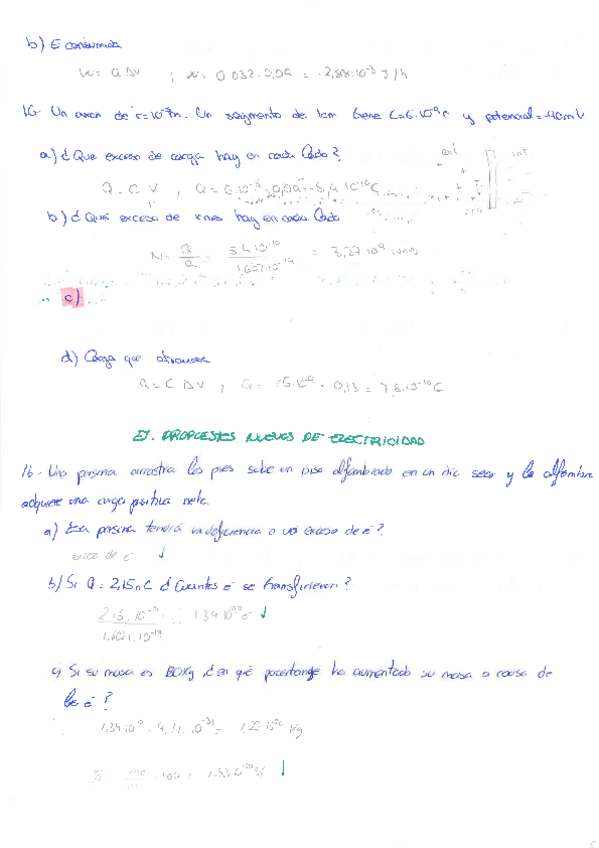 b) E consumida
W = Q ΔV ; W = 0'032 · 0,09 = 2,88·10⁻³ J/h
16. Un axon de r=10⁻⁵m. Un segmento de 1cm tiene C=6·10⁻⁹F y potencial = 90mV
a) ¿Que exceso de carga hay en cada lado?
ext int
Q = C·V , Q = 6·10⁻⁹ · 0,09 = 5,4·10⁻¹⁰ C
b) ¿Qué exceso de iones hay en cada lado
N = Q/Q = 5'4·10⁻¹⁰ / 1,602·10⁻¹⁹ = 3,37·10⁹ iones
c)
d) Carga que atraviesa
Q = C ΔV ; Q = 6·10⁻⁹ · 0,13 = 7,8·10⁻¹⁰ C
EJ. PROPUESTOS NUEVOS DE ELECTRICIDAD
16.- Una persona arrastra los pies sobre un piso alfombrado en un dia seco y la alfombra
adquiere una carga positiva neta.
a) Esa persona tendrá una deficiencia o un exceso de e⁻?
exceso de e⁻
b) Si Q = 2,15nC ¿Cuántos e⁻ se transfirieron?
2,15·10⁻⁹ / 1,602·10⁻¹⁹ = 1'34·10¹⁰ e⁻
c) Si su masa es 80Kg ¿en qué porcentange ha aumentado su masa a causa de
los e⁻?
1,34·10¹⁰ · 9,11·10⁻³¹ = 1,22·10⁻²⁰ Kg
% · 100 = 1,53·10⁻²⁰ %